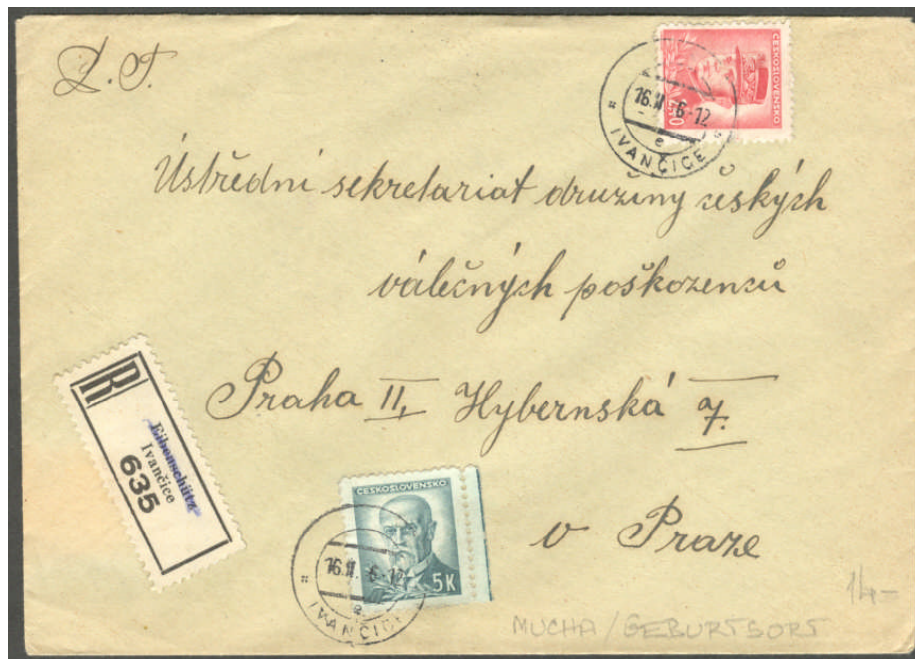 L. T.
ČESKOSLOVENSKO
16. II. 6-12
e
IVANČICE
Ústřední sekretariat družiny českých
válečných poškozenců
Praha II, Hybernská 7.
v Praze
R
Eibenschütz
Ivančice
635
ČESKOSLOVENSKO
5K
16. II. 6-12
e
IVANČICE
14-
MUCHA / GEBURTSORT